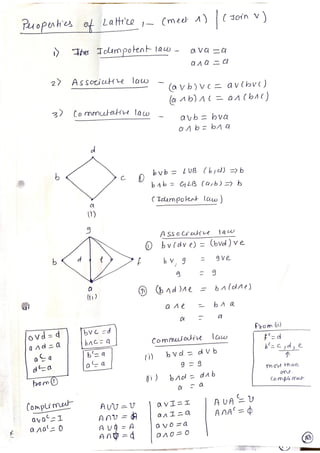 Properties of Lattice :- (meet ∧) | (Join ∨)
1) The Idempotent law - a∨a = a
a∧a = a
2) Associative law - (a∨b)∨c = a∨(b∨c)
(a∧b)∧c = a∧(b∧c)
3) Commutative law - a∨b = b∨a
a∧b = b∧a
d
b
c
a
(1)
① b∨b = LUB (b,d) ⇒ b
b∧b = GLB (a,b) ⇒ b
(Idempotent law)
g
b
d
e
f
a
(ii)
Associative law
① b∨(d∨e) = (b∨d)∨e
b∨g = g∨e
g = g
(b∧d)∧e = b∧(d∧e)
a∧e = b∧a
a = a
Commutative law
(i) b∨d = d∨b
g = g
(ii) b∧d = d∧b
a = a
a∨d = d
a∧d = a
d = a
from ①
b∨c = d
b∧c = a
From (ii)
more than
one
compliment
Compliment
a∨aᶜ = 1
a∧aᶜ = 0
A∪U = U
A∪φ = A
a∨1 = 1
a∧1 = a
a∨0 = a
a∧0 = 0
A∪Aᶜ = U
A∩Aᶜ = φ